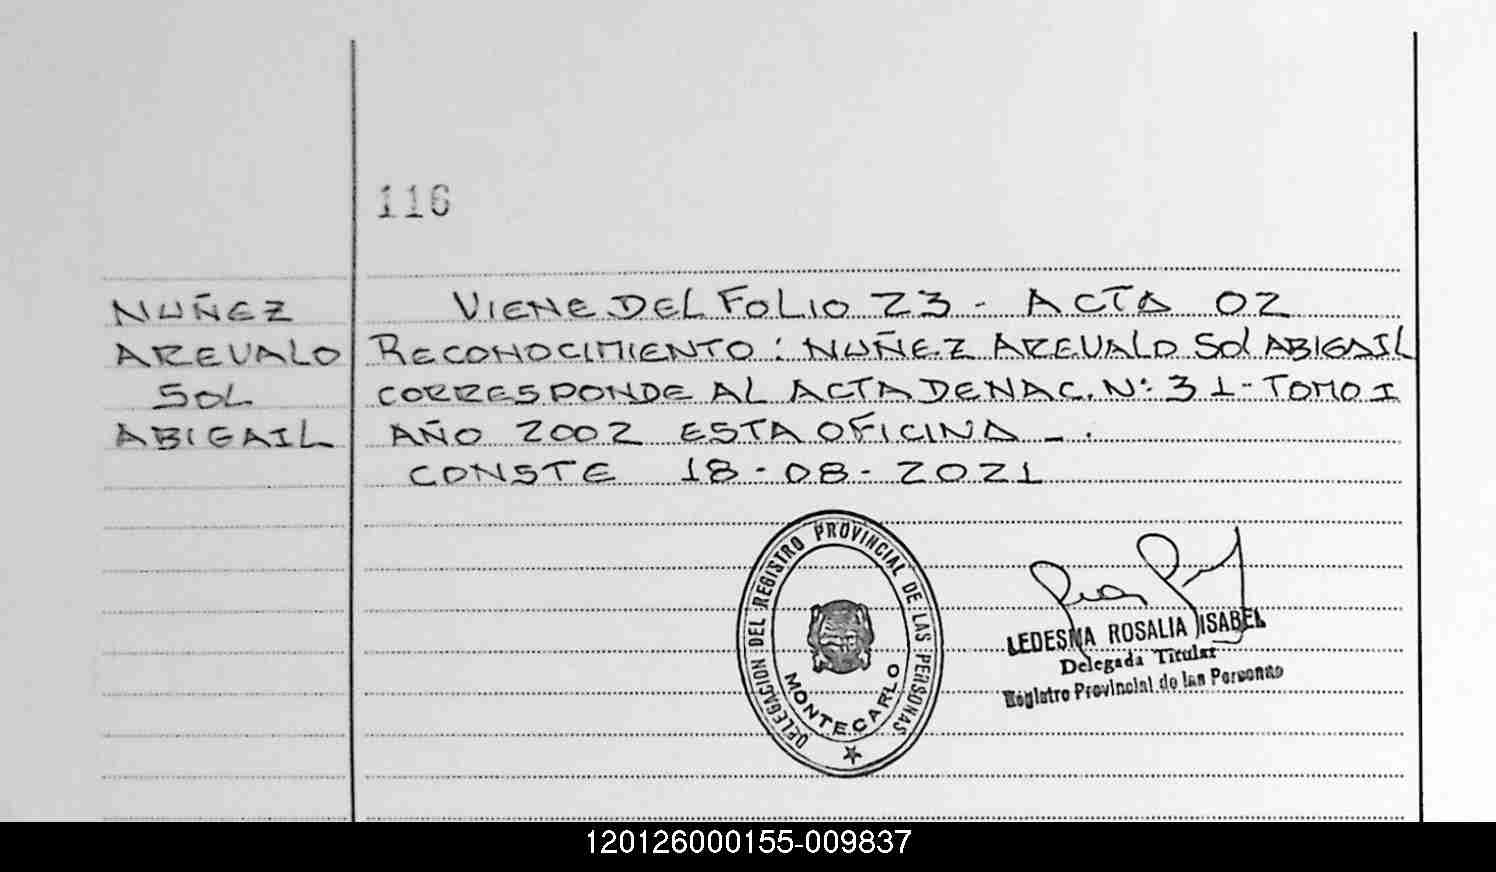 116
NUÑEZ
AREVALO
SOL
ABIGAIL
VIENE DEL FOLIO 23 - ACTA 02
RECONOCIMIENTO: NUÑEZ AREVALO SOL ABIGAIL
CORRESPONDE AL ACTA DE NAC. Nº 31 - TOMO I
AÑO 2002 ESTA OFICINA - .
CONSTE 18-08-2021
DELEGACION DEL REGISTRO PROVINCIAL DE LAS PERSONAS
MONTECARLO
LEDESMA ROSALIA ISABEL
Delegada Titular
Registro Provincial de las Personas
120126000155-009837